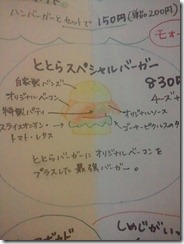 ハンバーガーとセットで 150円(単品200円)
モォー
ととらスペシャルバーガー
830円
自家製バンズ
オリジナルベーコン
特製パティ
スライスオニオン
トマト・レタス
チーズ
オリジナルソース
ピクルス
ととらバーガーにオリジナルベーコンを
プラスした最強バーガー。
しめじがいっ